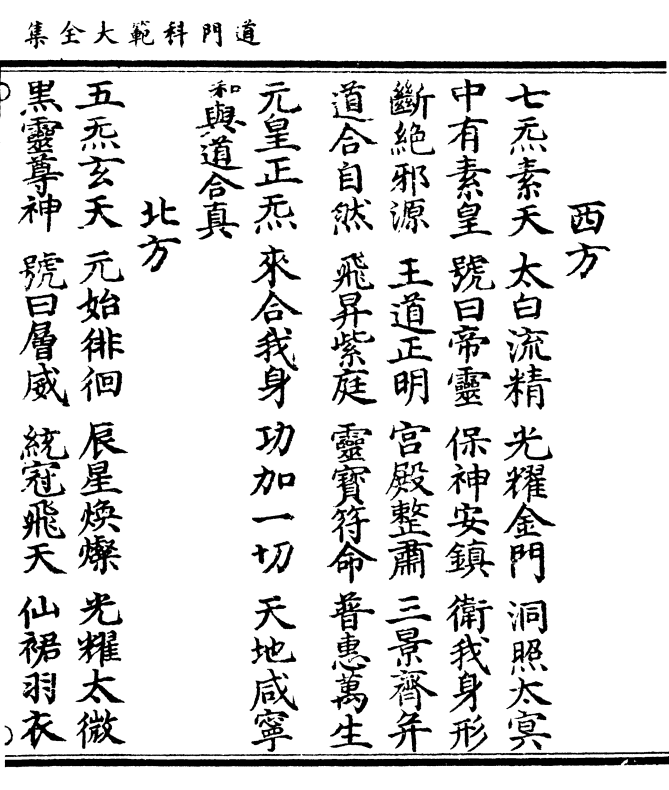 道門科範大全集
西方
七炁素天　太白流精　光耀金門　洞照太冥
中有素皇　號曰帝靈　保神安鎮　衛我身形
斷絶邪源　王道正明　宮殿整肅　三景齊并
道合自然　飛昇紫庭　靈寶符命　普惠萬生
元皇正炁　來合我身　功加一切　天地咸寧
和與道合真
北方
五炁玄天　元始徘徊　辰星煥燦　光耀太微
黒靈尊神　號曰層威　統冠飛天　仙裙羽衣